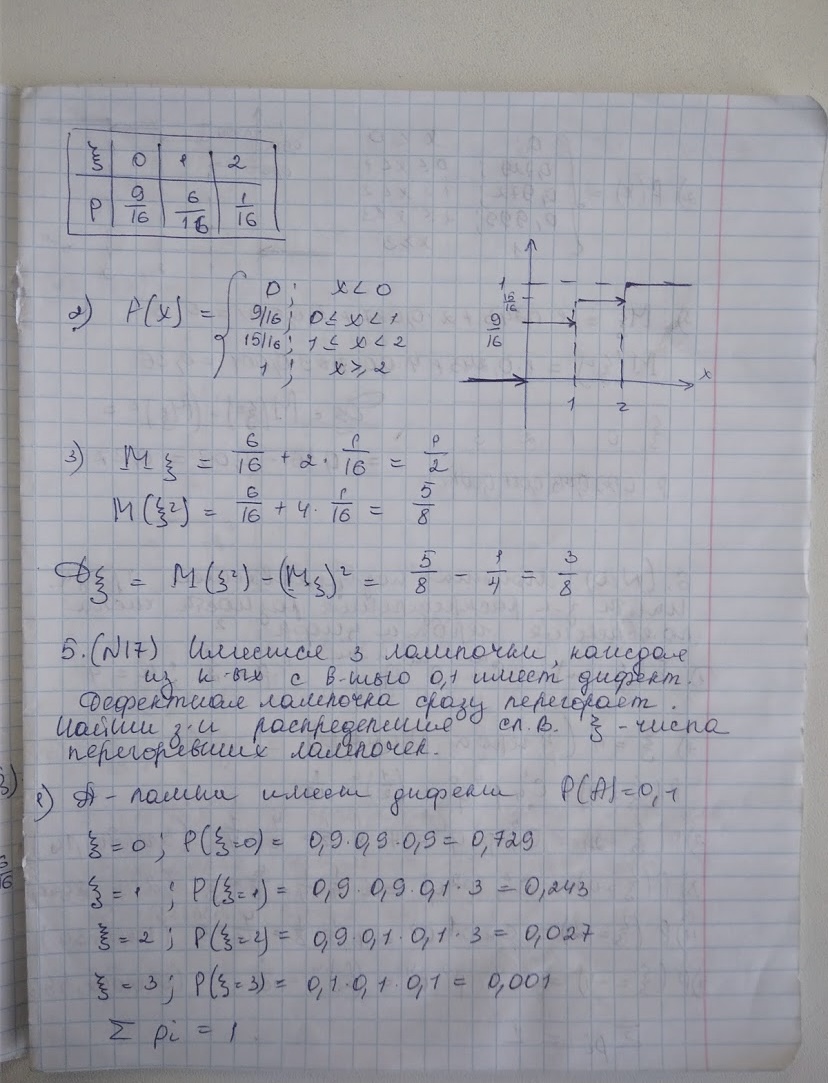 ξ 0 1 2
P 9/16 6/16 1/16
2) P(x) = { 0 ; x < 0
9/16 ; 0 ≤ x < 1
15/16 ; 1 ≤ x < 2
1 ; x ≥ 2
1
15/16
9/16
1 2 x
3) Mξ = 6/16 + 2 · 1/16 = 1/2
M(ξ²) = 6/16 + 4 · 1/16 = 5/8
Dξ = M(ξ²) - (Mξ)² = 5/8 - 1/4 = 3/8
5. (N17) Имеется 3 лампочки, каждая
из к-ых с в-тью 0,1 имеет дифект.
Дефектная лампочка сразу перегорает.
Найти з-н распределение сл. в. ξ - числа
перегоревших лампочек.
1) A - лампа имеет дифект P(A) = 0,1
ξ = 0 ; P(ξ=0) = 0,9 · 0,9 · 0,9 = 0,729
ξ = 1 ; P(ξ=1) = 0,9 · 0,9 · 0,1 · 3 = 0,243
ξ = 2 ; P(ξ=2) = 0,9 · 0,1 · 0,1 · 3 = 0,027
ξ = 3 ; P(ξ=3) = 0,1 · 0,1 · 0,1 = 0,001
Σ pi = 1